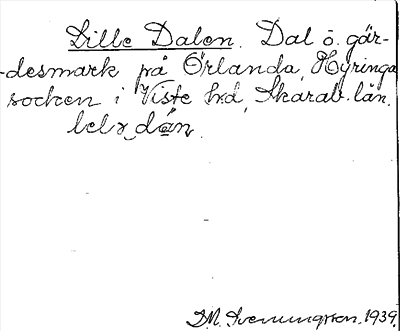 Lille Dalen. Dal ö. gär-
-desmark på Örlanda, Hyringa
socken i Viste hrd, Skarab. län.
D.M. Svenungsson. 1939.